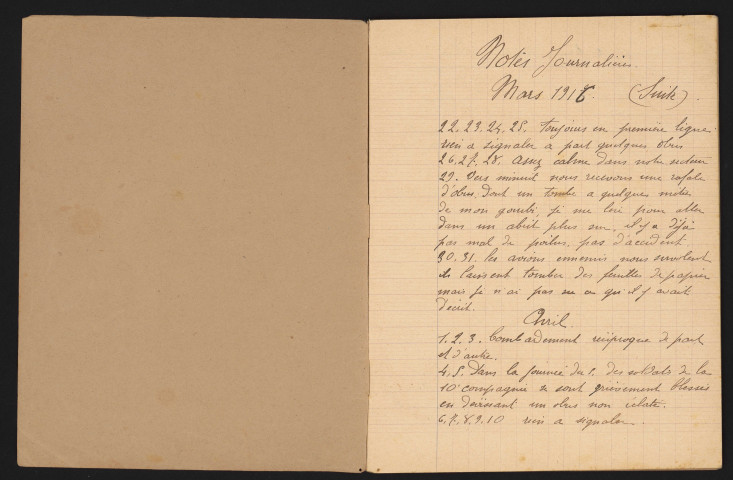 Notes Journalières
Mars 1916. (Suite).
22. 23. 24. 25. toujours en première ligne
rien a signaler a part quelques obus
26. 27. 28. assez calme dans notre secteur
29. Vers minuit nous recevons une rafale
d'obus. dont un tombe a quelques mètre
de mon gourbi, je me lève pour aller
dans un abrit plus sur, il y a déjà
pas mal de poilus, pas d'accident.
30. 31. les avions ennemis nous survolent
ils laissent tomber des feuilles de papier
mais je n'ai pas vu ce qu'il y avait
d'écrit.
Avril.
1. 2. 3. Bombardement réciproque de part
et d'autre.
4. 5. Dans la journée du 5. des soldats de la
10e compagnie se sont grièvement blessés
en dévissant un obus non éclaté.
6. 7. 8. 9. 10 rien a signaler.